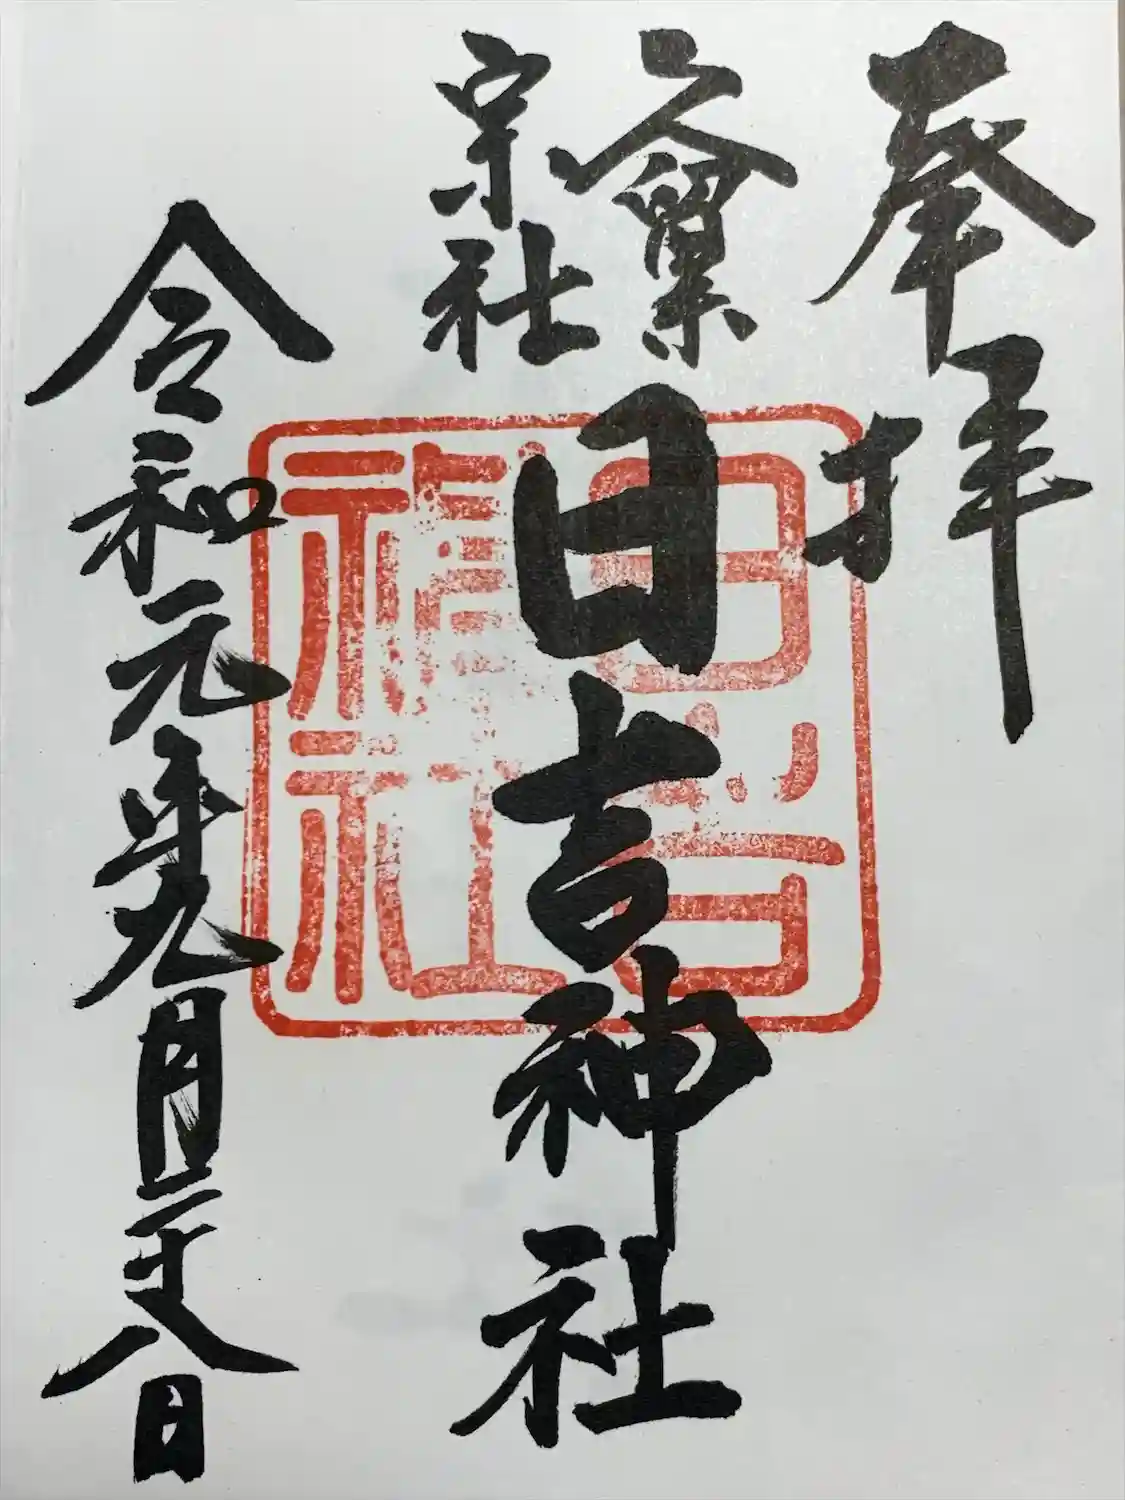 奉拝
久留米
宗社
日吉神社
令和元年九月二十八日
日吉
神社